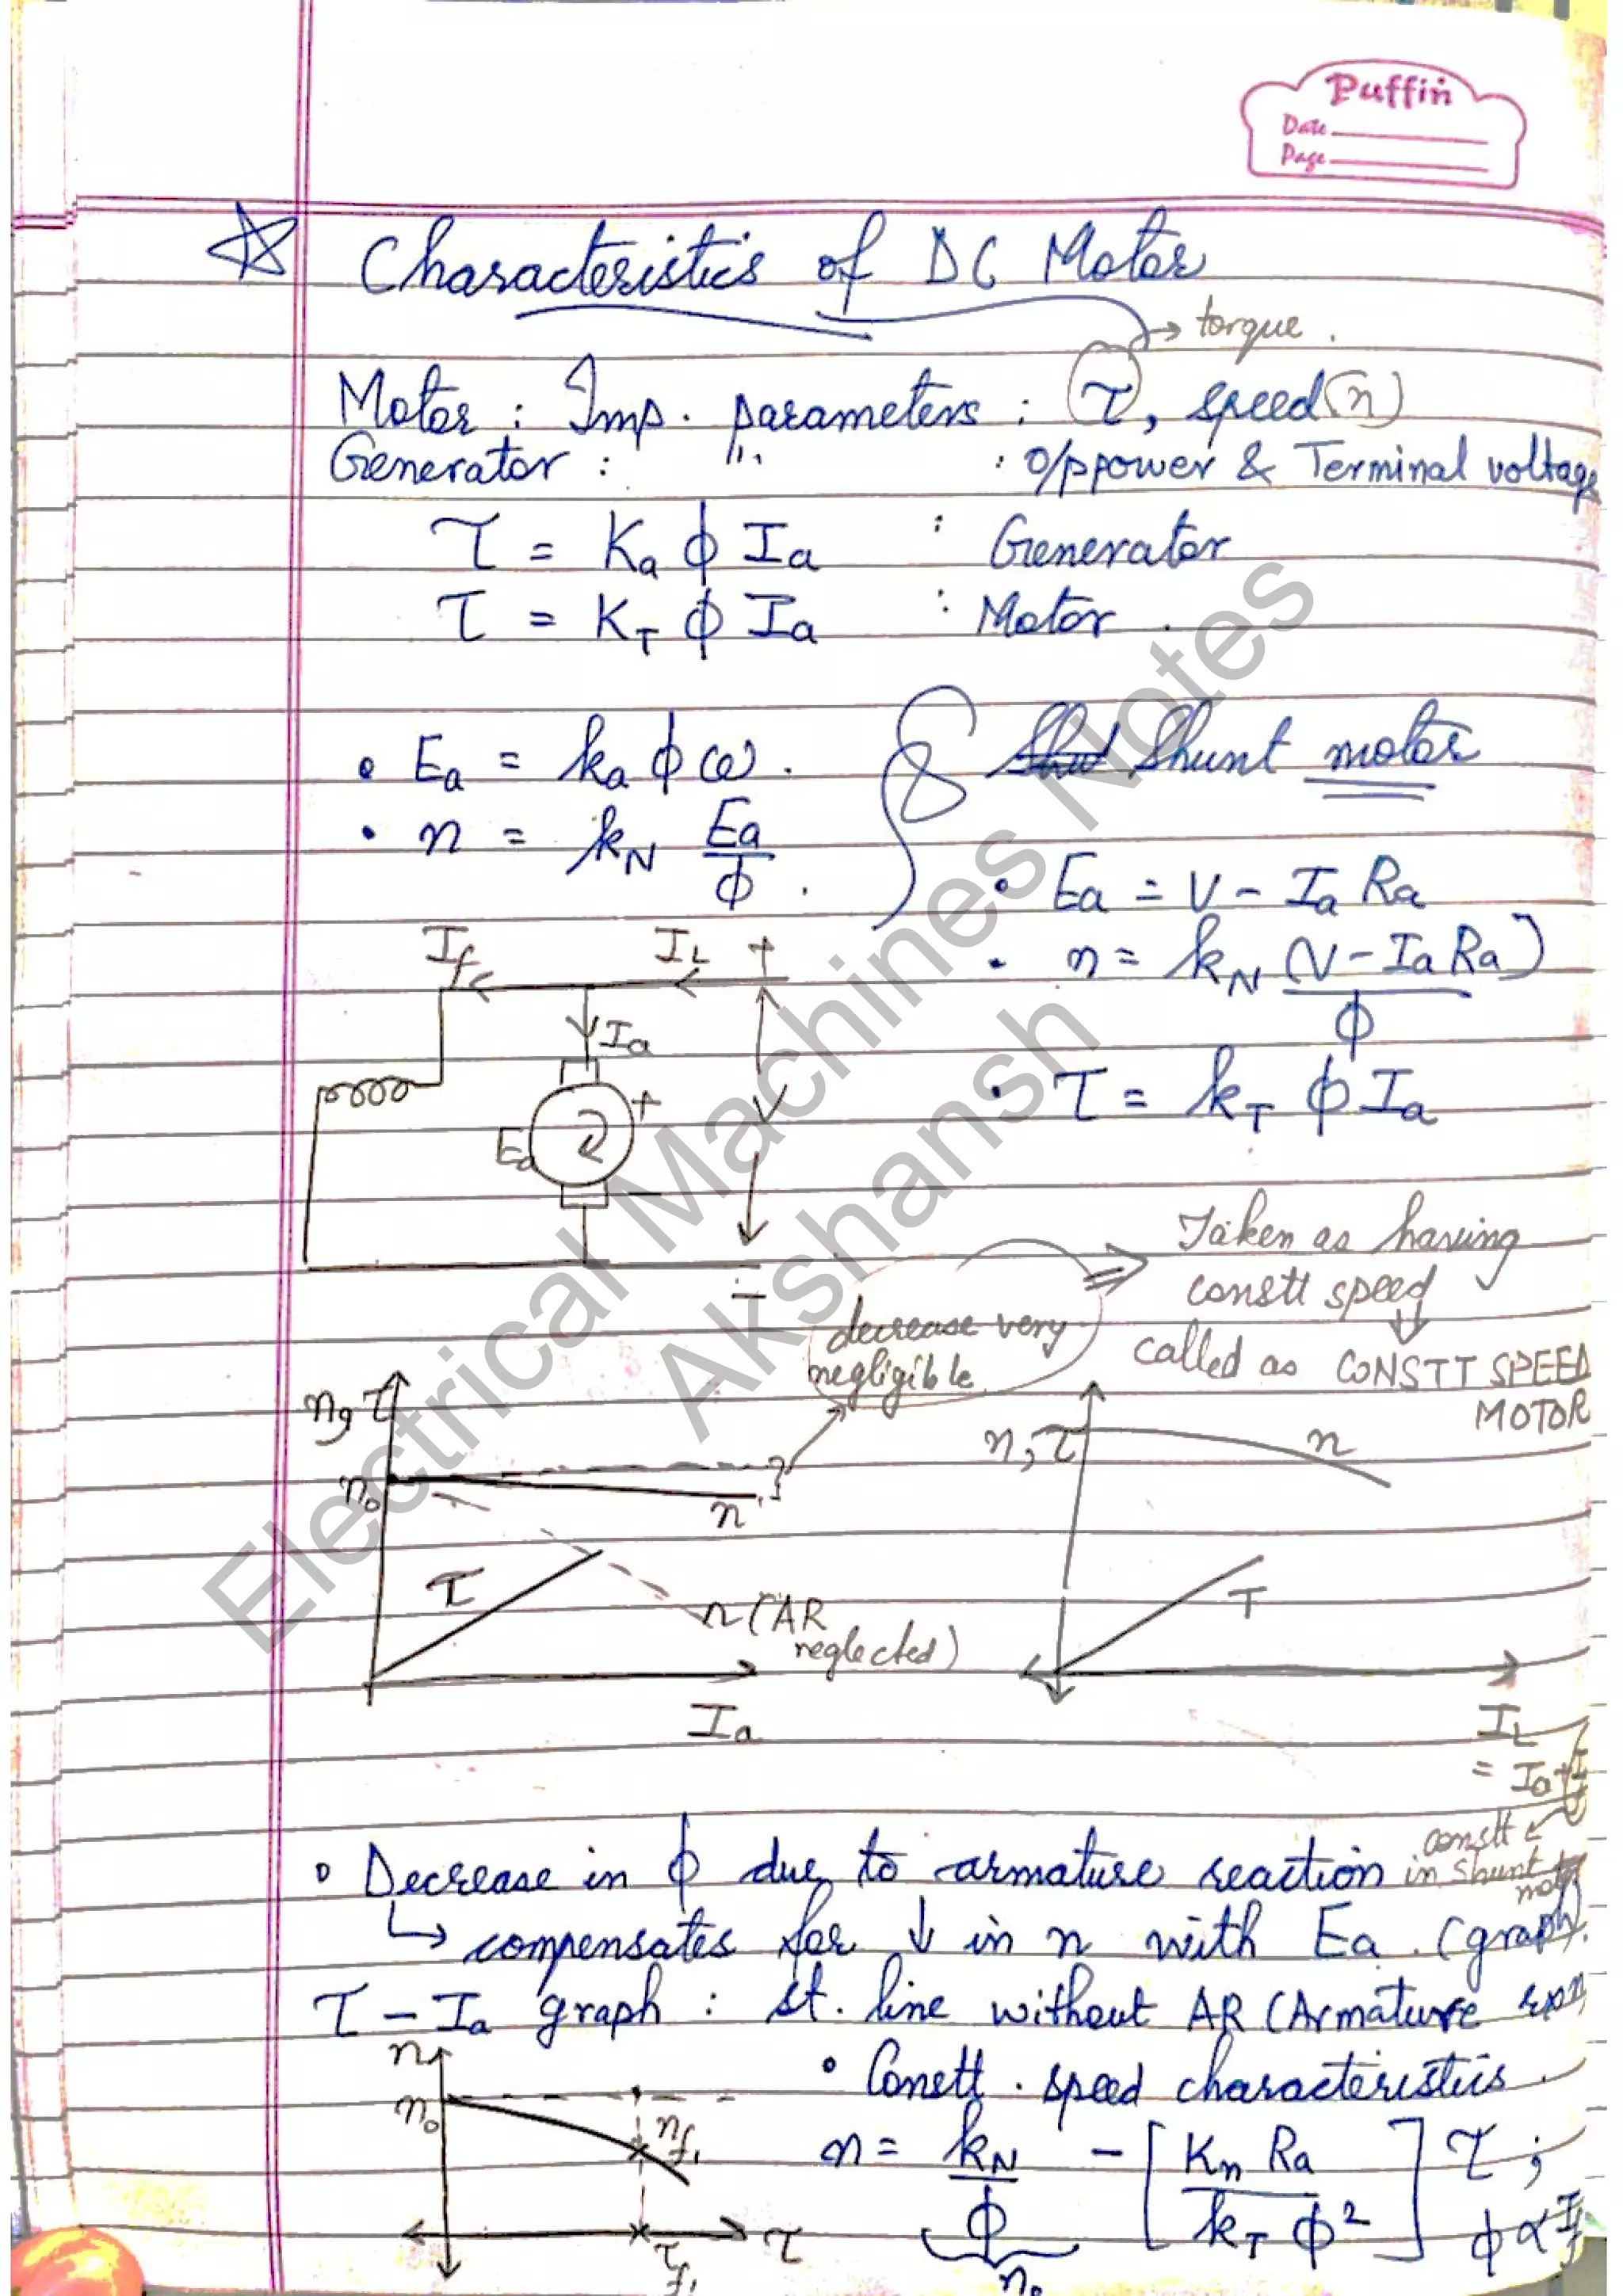 Puffin
Date
Page
Characteristics of DC Motor
→ torque.
Motor : Imp. parameters : τ, speed (n)
Generator : " : O/P power & Terminal voltage
τ = Ka ϕ Ia : Generator
τ = KT ϕ Ia : Motor.
• Ea = ka ϕ ω.
• n = kN Ea/ϕ.
Shunt motor
• Ea = V - Ia Ra
• n = kN (V - Ia Ra)/ϕ
• τ = kT ϕ Ia
If IL +
Ia
+
V
Ea
-
-
Taken as having
constt speed
decrease very
negligible
called as CONSTT SPEED
MOTOR
n, τ
n0
n
τ
n (AR
neglected)
Ia
n, τ
n
T
IL
= Ia + If
constt
in shunt
• Decrease in ϕ due to armature reaction
↳ compensates for ↓ in n with Ea. (graph).
τ - Ia graph : st. line without AR (Armature rxn
• Constt. speed characteristics.
n
n0
nf1
τ
τf1
n = kN/ϕ - [Kn Ra / kT ϕ²] τ ;
n0
ϕ ∝ If
Electrical Machines Notes
Akshansh